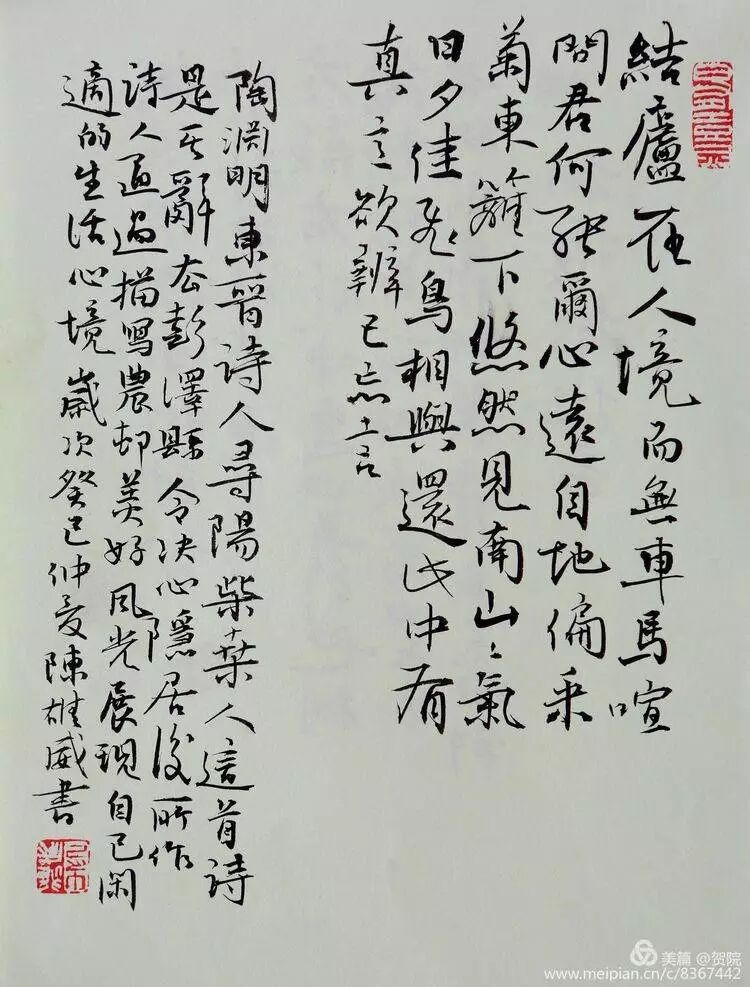 結廬在人境而無車馬喧
問君何能爾心遠自地偏采
菊東籬下悠然見南山山氣
日夕佳飛鳥相與還此中有
真意欲辨已忘言
陶淵明東晉詩人尋陽柴桑人這首詩
是其辭去彭澤縣令決心隱居後所作
詩人通過描寫農邨美好風光展現自己闲
適的生活心境 歲次癸巳仲夏陳雄威書
美篇 @贺院
www.meipian.cn/c/8367442